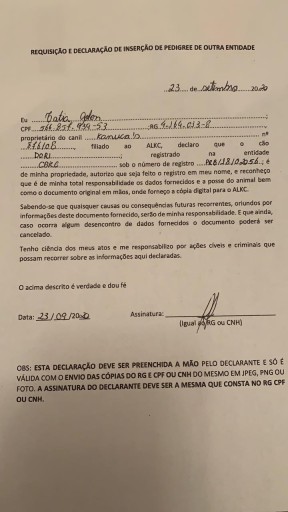 REQUISIÇÃO E DECLARAÇÃO DE INSERÇÃO DE PEDIGREE DE OUTRA ENTIDADE
23 de setembro 2020
Eu
CPF RG
proprietário do canil Kanuca's nº
filiado ao ALKC, declaro que o cão
DORI registrado na entidade
CBKC sob o número de registro ; é
de minha propriedade, autorizo que seja feito o registro em meu nome, e reconheço
que é de minha total responsabilidade os dados fornecidos e a posse do animal bem
como o documento original em mãos, onde forneço a cópia digital para o ALKC.
Sabendo-se que quaisquer causas ou consequências futuras recorrentes, oriundos por
informações deste documento fornecido, serão de minha responsabilidade. E que ainda,
caso ocorra algum desencontro de dados fornecidos o documento poderá ser
cancelado.
Tenho ciência dos meus atos e me responsabilizo por ações cíveis e criminais que
possam recorrer sobre as informações aqui declaradas.
O acima descrito é verdade e dou fé
Data: 23/09/2020 Assinatura:
(Igual ao RG ou CNH)
OBS: ESTA DECLARAÇÃO DEVE SER PREENCHIDA A MÃO PELO DECLARANTE E SÓ É
VÁLIDA COM O ENVIO DAS CÓPIAS DO RG E CPF OU CNH DO MESMO EM JPEG, PNG OU
FOTO. A ASSINATURA DO DECLARANTE DEVE SER A MESMA QUE CONSTA NO RG CPF
OU CNH.